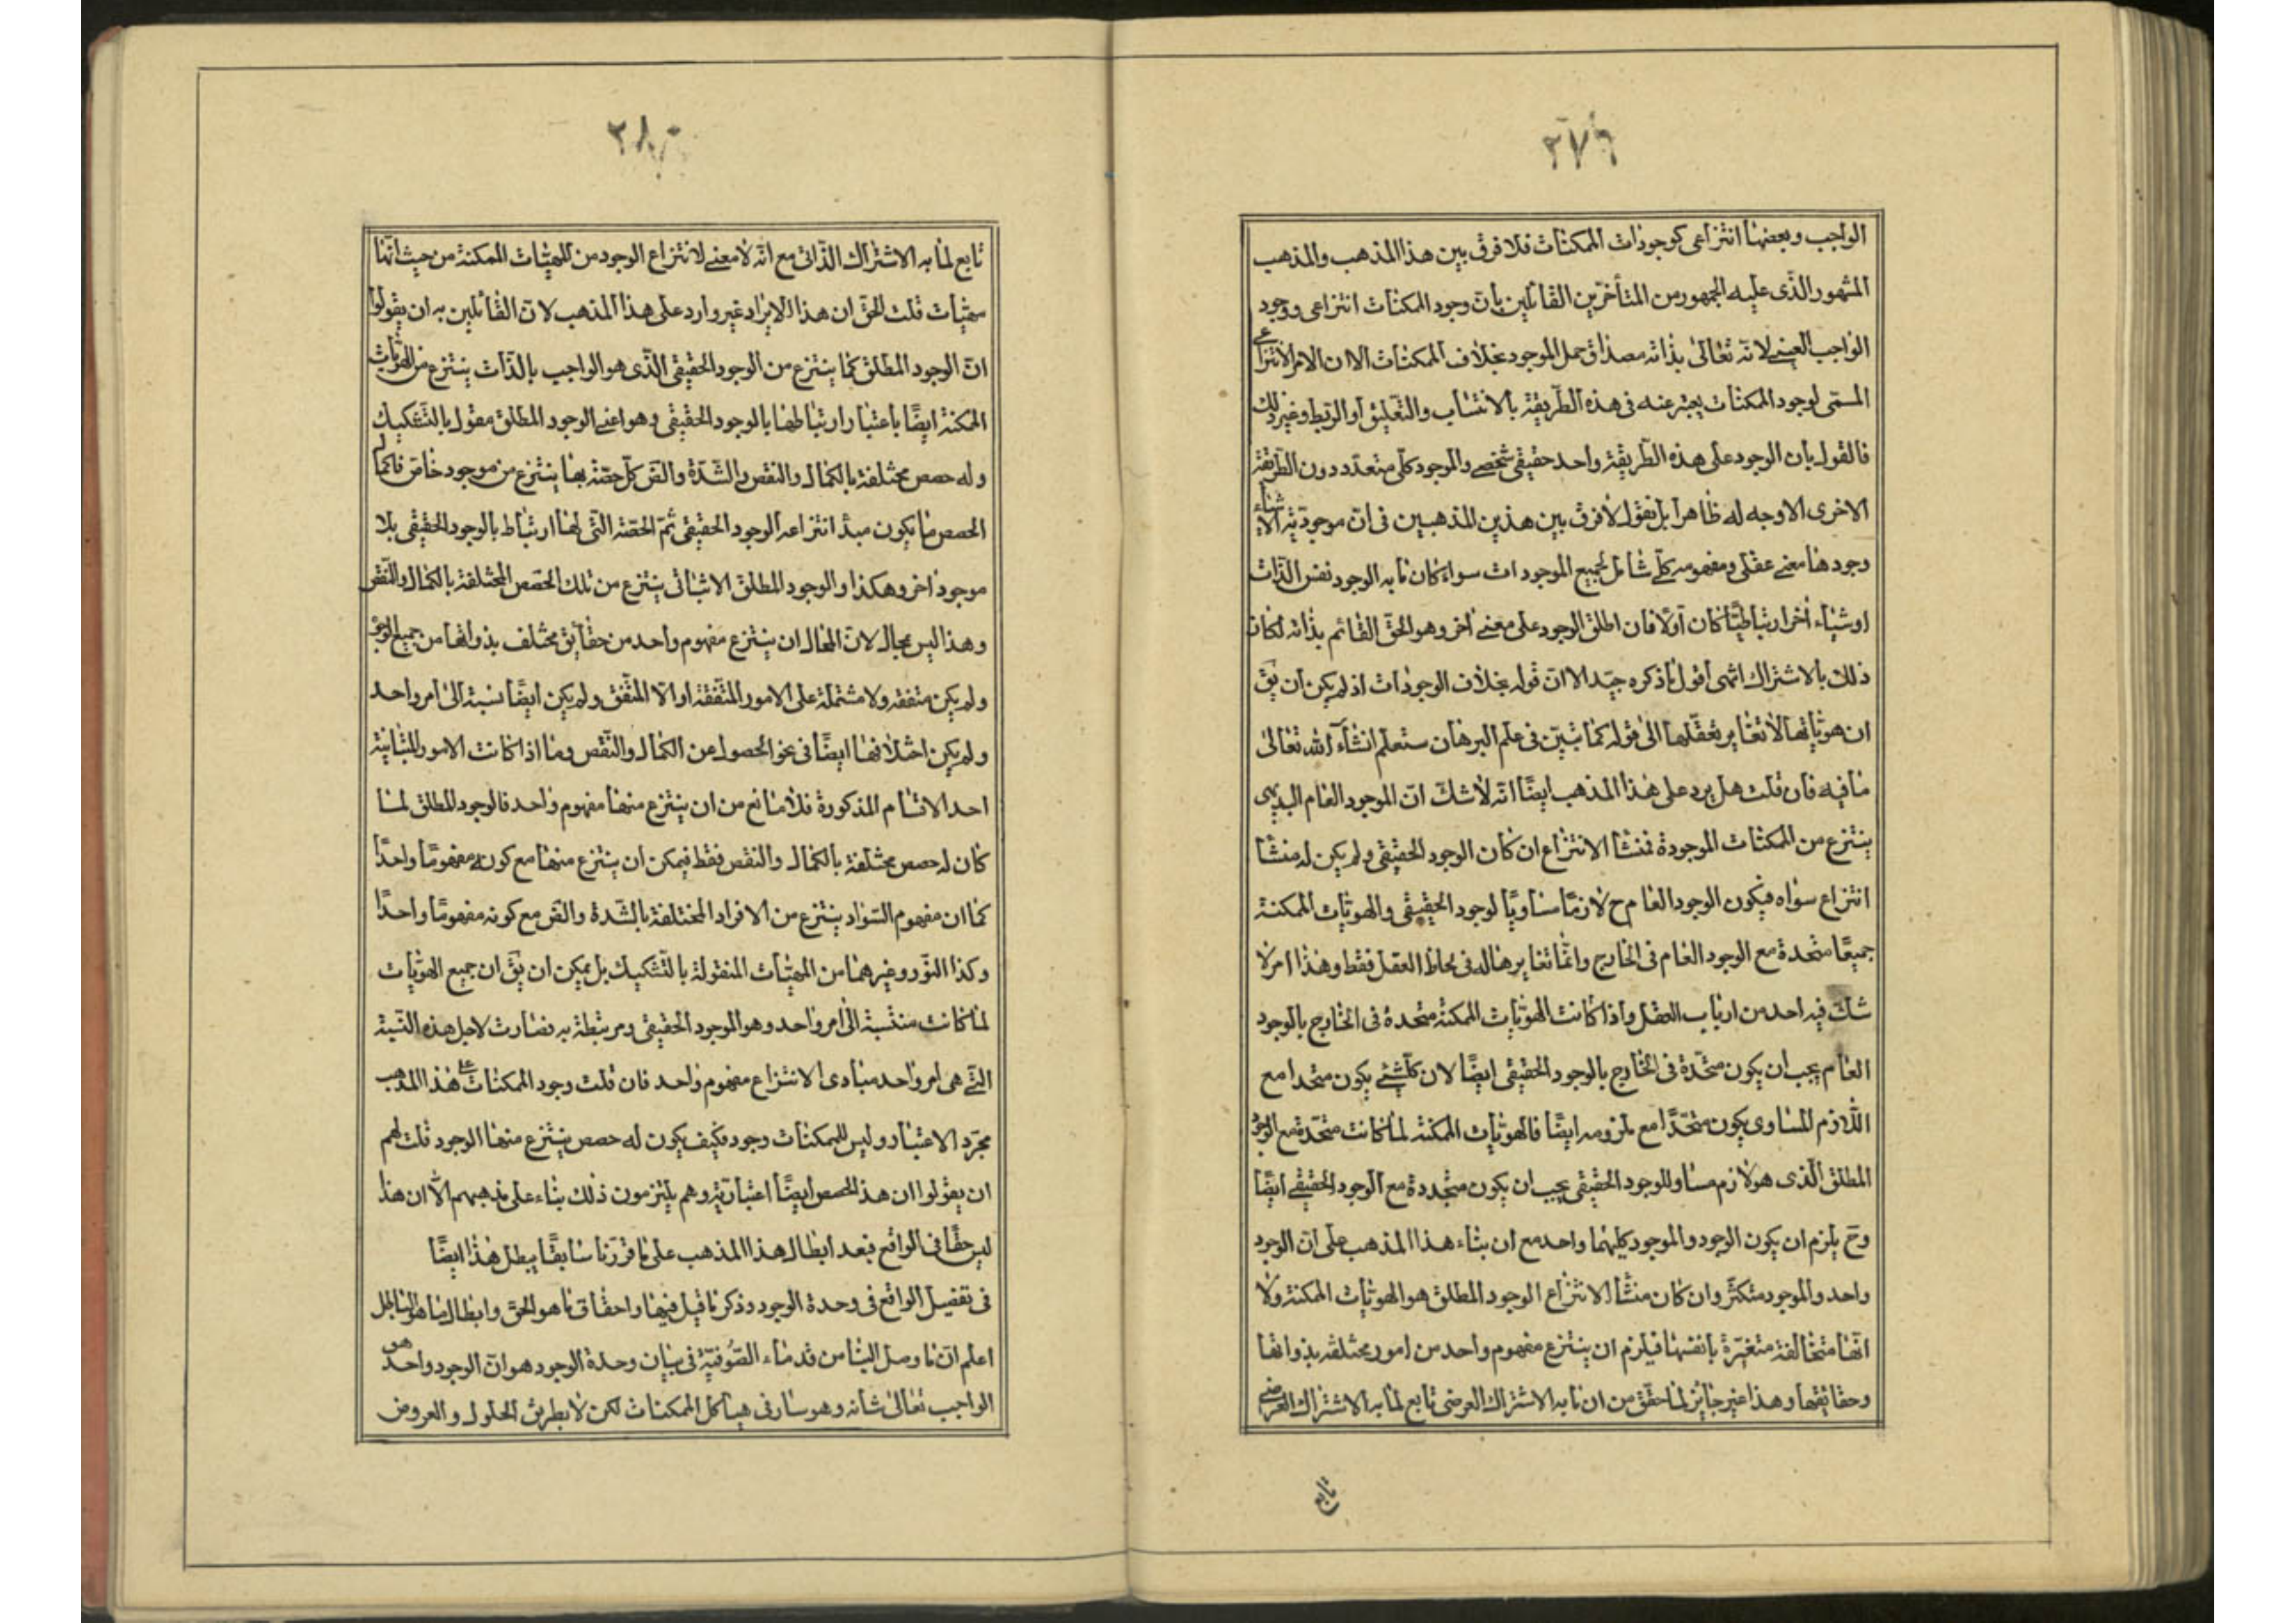 ٢٧٩
الواجب وبعضها انتزاعى كوجودات الممكنات فلا فرق بين هذا المذهب والمذهب
المشهور الذى عليه الجمهور من المتأخرين القائلين بان وجود الممكنات انتزاعى ووجود
الواجب العينى لانه تعالى بذاته مصداق حمل الموجود بخلاف الممكنات الا ان الامر الانتزاعى
المسمى لوجود الممكنات يعبر عنه فى هذه الطريقة بالانتساب والتعليق او الربط وغير ذلك
فالقول بان الوجود على هذه الطريقة واحد حقيقى شخصى والموجود كلى متعدد دون الطريقة
الاخرى الاوجه له ظاهرا بل نقول لا فرق بين هذين المذهبين فى ان موجودية الاشياء
وجودها معنى عقلى ومفهومه كلى شامل لجميع الموجودات سواء كان ما به الوجود نفس الذات
او شيئاء اخر ارتباطيا كان اولا فان اطلق الوجود على معنى اخر وهو الحق القائم بذاته لكان
ذلك بالاشتراك انتهى اقول ما ذكره جيد الا ان قوله بخلاف الوجودات اذ لم يكن ان يق
ان هوياتها لا تغاير تعقلها الى قوله كما تبين فى علم البرهان ستعلم انشاء الله تعالى
ما فيه فان قلت هل يرد على هذا المذهب ايضا انه لا شك ان الموجود العام البديهى
ينتزع من الممكنات الموجودة فمنشا الانتزاع ان كان الوجود الحقيقى ولم يكن له منشا
انتزاع سواه فيكون الوجود العام ح لازما مساويا لوجود الحقيقى والهويات الممكنة
جميعا متحدة مع الوجود العام فى الخارج وانما تغايرها له فى لحاظ العقل فقط وهذا امر لا
شك فيه احد من ارباب العقل واذا كانت الهويات الممكنة متحدة فى الخارج بالوجود
العام يجب ان يكون متحدة فى الخارج بالوجود الحقيقى ايضا لان كلشئ يكون متحدا مع
اللازم المساوى يكون متحدا مع ملزومه ايضا فالهويات الممكنة لما كانت متحدة مع الوجود
المطلق الذى هو لازم مساو للوجود الحقيقى يجب ان يكون متحددة مع الوجود الحقيقى ايضا
وح يلزم ان يكون الوجود والموجود كليهما واحد مع ان بناء هذا المذهب على ان الوجود
واحد والموجود متكثر وان كان منشا الانتزاع الوجود المطلق هو الهويات الممكنة ولا
انها متخالفة متغيرة بانفسها فيلزم ان ينتزع مفهوم واحد من امور مختلفة بذواتها
وحقايقها وهذا غير جائز لما حقق من ان ما به الاشتراك العرضى تابع لما به الاشتراك العرضى
تابع
٢٨٠
تابع لما به الاشتراك الذاتى مع انه لا معنى لانتزاع الوجود من المهيات الممكنة من حيث انها
مهيات قلت الحق ان هذا الايراد غير وارد على هذا المذهب لان القائلين به ان يقولوا
ان الوجود المطلق كما ينتزع من الوجود الحقيقى الذى هو الواجب بالذات ينتزع من الهويات
الممكنة ايضا باعتبار ارتباطها بالوجود الحقيقى وهو اعنى الوجود المطلق مقول بالتشكيك
وله حصص مختلفة بالكمال والنقص والشدة والض كل حصة بها ينتزع من موجود خاص فاكمل
الحصص ما يكون مبدأ انتزاعه الوجود الحقيقى ثم الحصة التى لها ارتباط بالوجود الحقيقى بلا
موجود اخر وهكذا والوجود المطلق الاثباتى ينتزع من تلك الحصص المختلفة بالكمال والنقص
وهذا ليس بمحال لان المحال ان ينتزع مفهوم واحد من حقايق مختلف بذواتها من جميع الوجوه
ولم يكن متفقه ولا مشتملة على الامور المتفقة او الا المتفق ولم يكن ايضا نسبة الى امر واحد
ولم يكن اختلافها ايضا فى نحو الحصول من الكمال والنقص وما اذا كانت الامور المتباينة
احد الاقسام المذكورة فلا مانع من ان ينتزع منها مفهوم واحد فالوجود المطلق لما
كان له حصص مختلفة بالكمال والنقص فقط فيمكن ان ينتزع منها مع كونه مفهوما واحدا
كما ان مفهوم السواد ينتزع من الافراد المختلفة بالشدة والض مع كونه مفهوما واحدا
وكذا النور وغيرهما من المهيات المنقولة بالتشكيك بل يمكن ان يق ان جميع الهويات
لما كانت منتسبة الى امر واحد وهو الموجود الحقيقى ومرتبطة به فصارت لاجل هذه النسبة
التى هى امر واحد مبادى الانتزاع مفهوم واحد فان قلت وجود الممكنات على هذا المذهب
مجرد الاعتبار وليس للممكنات وجود فكيف يكون له حصص ينتزع منها الوجود قلت لهم
ان يقولوا ان هذ الحصص ايضا اعتبارية وهم يلتزمون ذلك بناء على مذهبهم الا ان هذا
ليس حقا فى الواقع فبعد ابطال هذا المذهب على ما قررنا سابقا يبطل هذا ايضا
فى تفصيل الواقع فى وحدة الوجود وذكر ما قيل فيها واحقاق ما هو الحق وابطال ما هو الباطل
اعلم ان ما وصل الينا من قدماء الصوفية فى بيان وحدة الوجود هو ان الوجود واحد هو
الواجب تعالى شانه وهو سار فى هياكل الممكنات لكن لا بطريق الحلول والعروض